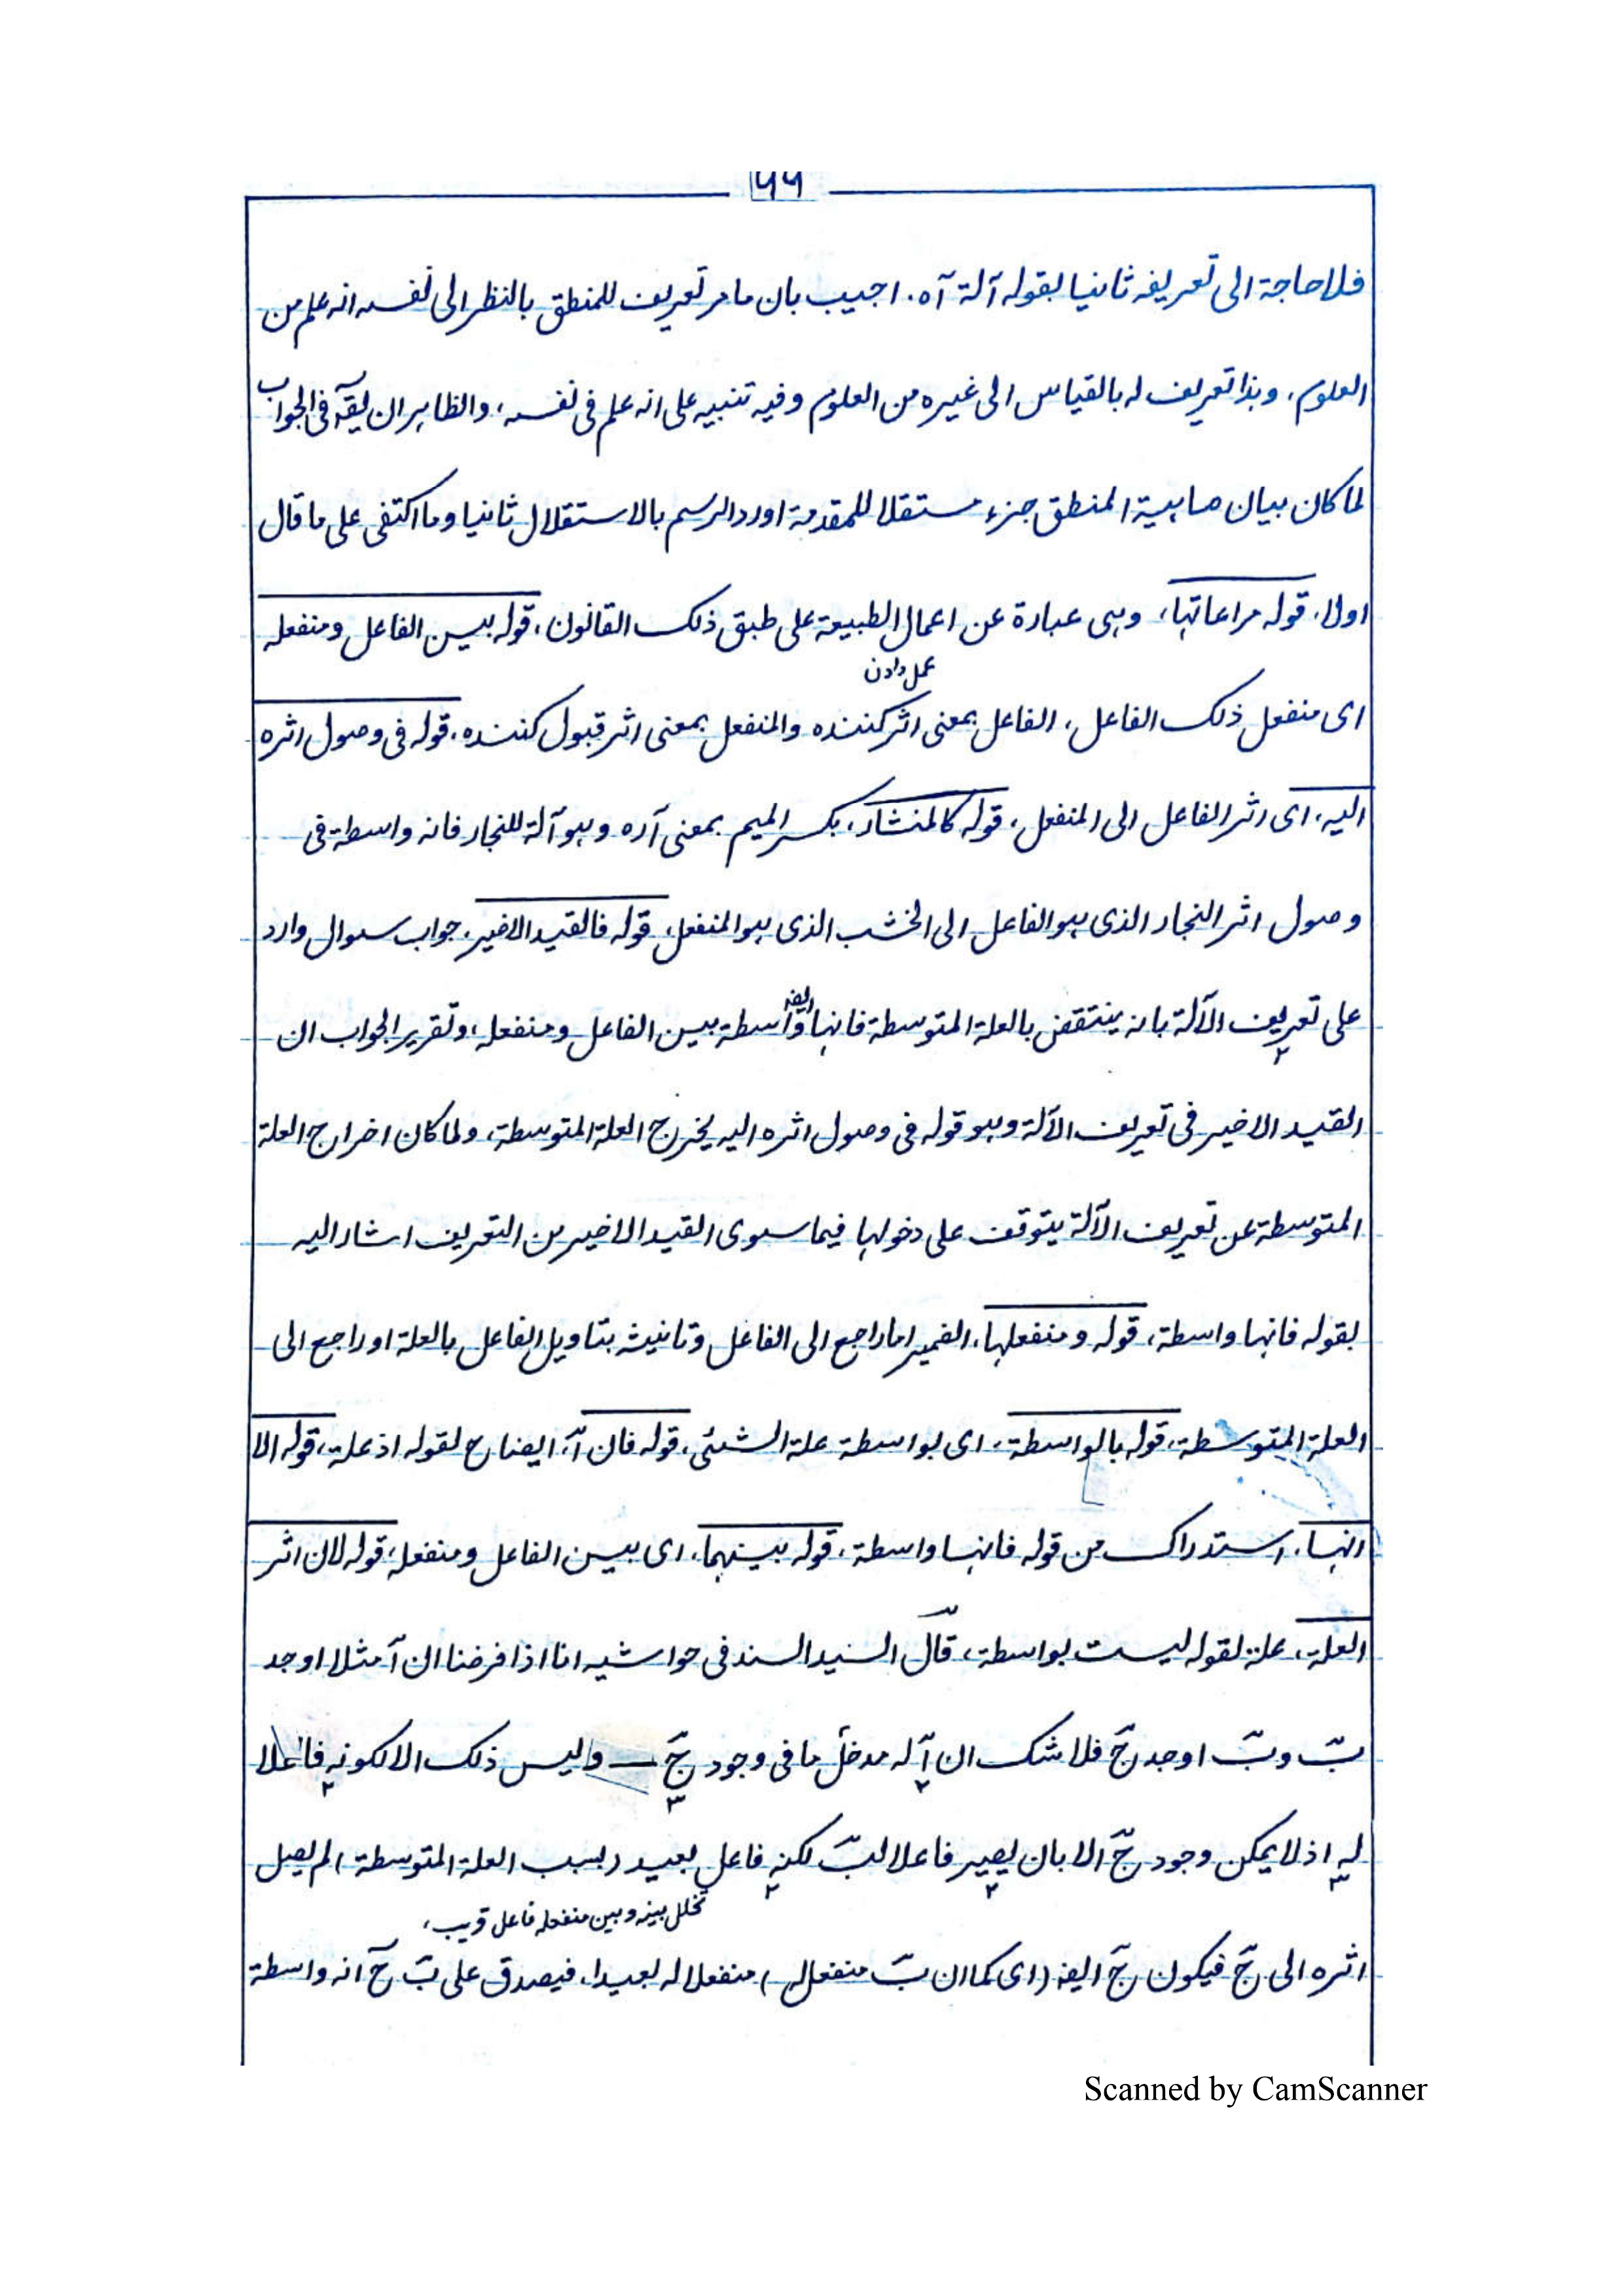 ۶۶
فلا حاجة الى تعريفه ثانيا بقوله آلة آه، اجيب بان ما مر تعريف للمنطق بالنظر الى نفسه انه علم من
العلوم، وهذا تعريف له بالقياس الى غيره من العلوم وفيه تنبيه على انه علم فى نفسه، والظاهر ان يقٓ فى الجواب
لما كان بيان ماهية المنطق جزء مستقلا للمقدمة اورد الرسم بالاستقلال ثانيا وما اكتفى على ما قال
اولا، قوله مراعاتها، وهى عبارة عن اعمال الطبيعة على طبق ذلك القانون، قوله بين الفاعل ومنفعله
عمل دادن
اى منفعل ذلك الفاعل، الفاعل بمعنى اثر كننده والمنفعل بمعنى اثر قبول كننده، قوله فى وصول اثره
اليه، اى اثر الفاعل الى المنفعل، قوله كالمنشار، بكسر الميم بمعنى آره وهو آلة للنجار فانه واسطة فى
وصول اثر النجار الذى هو الفاعل الى الخشب الذى هو المنفعل، قوله فالقيد الاخير، جواب سوال وارد
على تعريف الآلة بانه ينتقض بالعلة المتوسطة فانها ايضه واسطة بين الفاعل ومنفعله، وتقرير الجواب ان
القيد الاخير فى تعريف الآلة وهو قوله فى وصول اثره اليه يخرج العلة المتوسطة، ولما كان اخراج العلة
المتوسطة عن تعريف الآلة يتوقف على دخولها فيما سوى القيد الاخير من التعريف اشار اليه
بقوله فانها واسطة، قوله ومنفعلها، الضمير اما راجع الى الفاعل وتانيثه بتاويل الفاعل بالعلة او راجع الى
العلة المتوسطة، قوله بالواسطة، اى بواسطة علة الشئى، قوله فان آ، ايضاح لقوله اذ علة، قوله الا
انها، استدراك من قوله فانها واسطة، قوله بينهما، اى بين الفاعل ومنفعله، قوله لان اثر
العلة، علة لقوله ليست بواسطة، قال السيد السند فى حواشيه انا اذا فرضنا ان آ مثلا اوجد
بّ وبّ اوجد جّ فلا شك ان آ له مدخل ما فى وجود جّ وليس ذلك الا لكونه فاعلا
له اذ لا يمكن وجود جّ الا بان يصير فاعلا لبّ لكنه فاعل بعيد بسبب العلة المتوسطة لم يصل
تخلل بينه وبين منفعله فاعل قريب،
اثره الى جّ فيكون جّ ايضه (اى كما ان بّ منفعل له) منفعلا له بعيدا، فيصدق على بّ حّ انه واسطة
Scanned by CamScanner